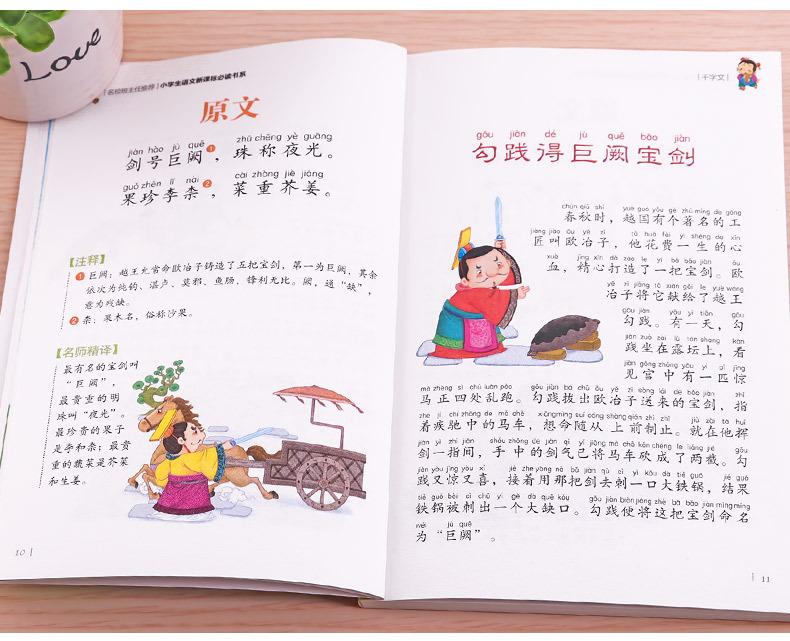 Love
名校班主任推荐 | 小学生语文新课标必读书系
原文
jiàn hào jù quē zhū chēng yè guāng
剑号巨阙❶，珠称夜光。
guǒ zhēn lǐ nài cài zhòng jiè jiāng
果珍李柰❷，菜重芥姜。
【注释】
❶ 巨阙：越王允常命欧冶子铸造了五把宝剑，第一为巨阙，其余
依次为纯钩、湛卢、莫邪、鱼肠，锋利无比。阙，通“缺”，
意为残缺。
❷ 柰：果木名，俗称沙果。
【名师精译】
最有名的宝剑叫
“巨阙”，
最贵重的明
珠叫“夜光”。
最珍贵的果子
是李和柰；最贵
重的蔬菜是芥菜
和生姜。
10
千字文
gōu jiàn dé jù quē bǎo jiàn
勾践得巨阙宝剑
chūn qiū shí yuè guó yǒu gè zhù míng de gōng
春秋时，越国有个著名的工
jiàng jiào ōu yě zǐ tā huā fèi yì shēng de xīn
匠叫欧冶子，他花费一生的心
xuè jīng xīn dǎ zào le yì bǎ bǎo jiàn ōu
血，精心打造了一把宝剑。欧
yě zǐ jiāng tā xiàn gěi le yuè wáng
冶子将它献给了越王
gōu jiàn yǒu yì tiān gōu
勾践。有一天，勾
jiàn zuò zài lù tán shàng kàn
践坐在露坛上，看
jiàn gōng zhōng yǒu yì pǐ jīng
见宫中有一匹惊
mǎ zhèng sì chù luàn pǎo gōu jiàn bá chū ōu yě zǐ sòng lái de bǎo jiàn zhǐ
马正四处乱跑。勾践拔出欧冶子送来的宝剑，指
zhe jí chí zhōng de mǎ chē xiǎng mìng suí cóng shàng qián zhì zhǐ jiù zài tā huī
着疾驰中的马车，想命随从上前制止。就在他挥
jiàn yì zhǐ jiān shǒu zhōng de jiàn qì yǐ jiāng mǎ chē kǎn chéng le liǎng jié gōu
剑一指间，手中的剑气已将马车砍成了两截。勾
jiàn yòu jīng yòu xǐ jiē zhe yòng nà bǎ jiàn qù cì yì kǒu dà tiě guō jié guǒ
践又惊又喜，接着用那把剑去刺一口大铁锅，结果
tiě guō bèi cì chū yí gè dà quē kǒu gōu jiàn biàn jiāng zhè bǎ bǎo jiàn mìng míng
铁锅被刺出一个大缺口。勾践便将这把宝剑命名
wéi jù quē
为“巨阙”。
11